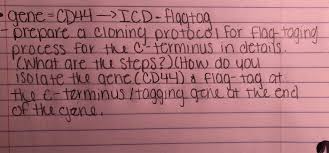 - gene = CD44 → ICD - flag tag
- prepare a cloning protocol for flag-taging
process for the C-terminus in details.
(What are the steps?)(How do you
isolate the gene (CD44) & flag-tag at
the C-terminus/tagging gene at the end
of the gene.